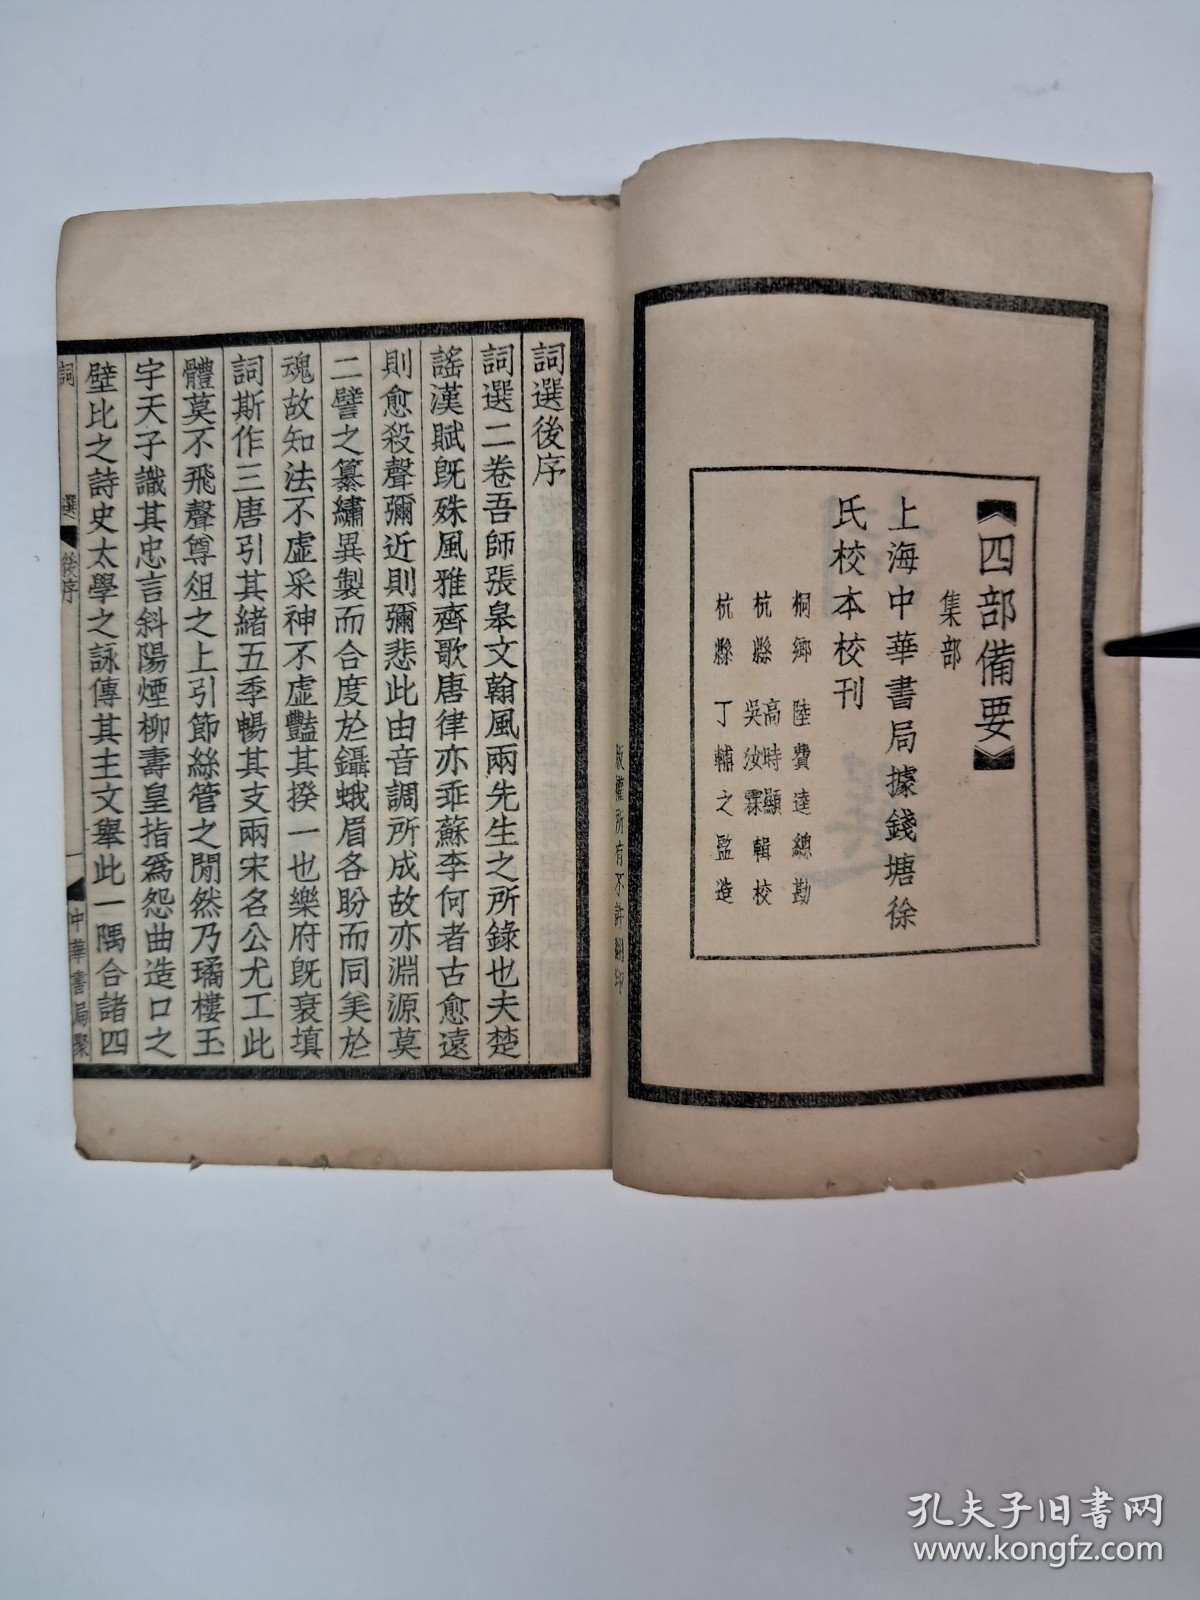 《四部備要》
集部
上海中華書局據錢塘徐
氏校本校刊
桐鄉 陸費逵總勘
杭縣 高時顯 吳汝霖 輯校
杭縣 丁輔之監造
版權所有不許翻印
詞選後序
詞選二卷吾師張皋文翰風兩先生之所錄也夫楚
謠漢賦既殊風雅齊歌唐律亦乖蘇李何者古愈遠
則愈殺聲彌近則彌悲此由音調所成故亦淵源莫
二譬之纂繡異製而合度於鑷蛾眉各盼而同美於
魂故知法不虛采神不虛豔其揆一也樂府既衰填
詞斯作三唐引其緒五季暢其支兩宋名公尤工此
體莫不飛聲尊俎之上引節絲管之閒然乃璚樓玉
宇天子識其忠言斜陽煙柳壽皇指爲怨曲造口之
壁比之詩史太學之詠傳其主文舉此一隅合諸四
詞 選 後序 一 中華書局聚
孔夫子旧书网
www.kongfz.com